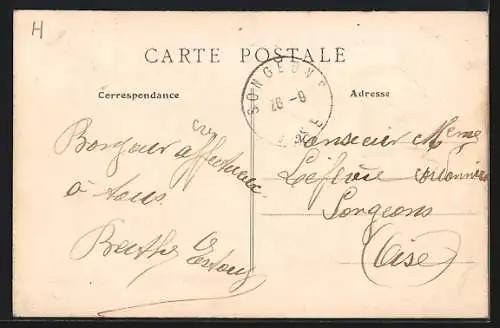 H
CARTE POSTALE
SONGEONS
26 -8
OISE
Correspondance
Adresse
Bonjour affectueux
à tous
Berthe
Monsieur Mme
Lefèvre cordonnier
Songeons
(Oise)